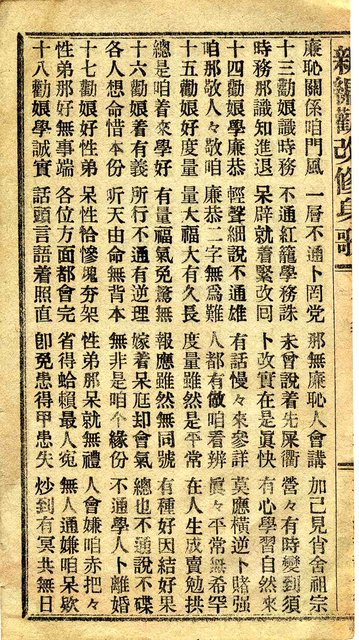 新編勸改修身歌
廉恥關係咱門風　一厝不通卜罔党　那無廉恥人會講　加己見肖舍祖宗
十三勸娘識時務　不通紅籠學務誅　未曾說着先屎衢　營々有時變到須
時務那識知進退　呆辟就着緊改回　卜改實在是眞快　有心學習自然來
十四勸娘學廉恭　輕聲細說不通雄　有話慢々來參詳　莫應橫逆卜賭强
咱那敬人々敬咱　廉恭二字無為難　人都有倣咱看辨　眞々平常無希罕
十五勸娘好度量　量大福大有久長　度量雖然是平常　在人生成賣勉拱
總是咱着來學好　有量福氣免驚無　報應雖然無同號　有種好因結好果
十六勸娘着有義　所行不通有逆理　嫁着呆尫却會氣　總也不通說不碟
各人想命惜本份　听天由命無背本　無非是咱个緣份　不通學人卜離婚
十七勸娘好性弟　呆性恰慘塊夯架　性弟那呆就無禮　人會嫌咱赤把々
性弟那好無事端　各位方面都會完　省得蛤賴最人宛　無人通嫌咱呆欵
十八勸娘學誠實　話頭言語着照直　卽免患得甲患失　炒到有冥共無日